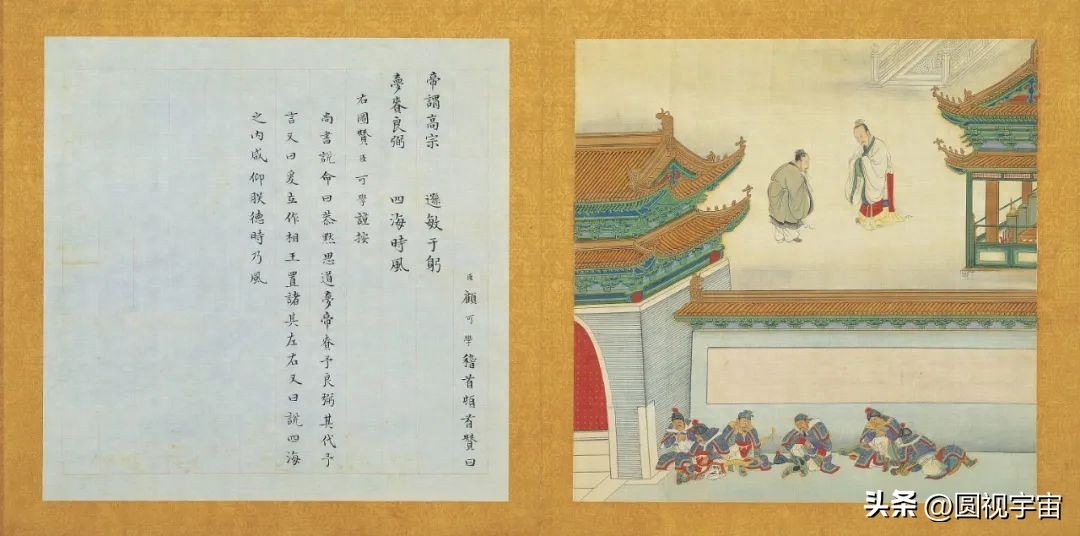 臣顧可學稽首頓首贊曰
帝謂高宗 遜敏于躬
夢賚良弼 四海時風
右圖贊臣可學謹按
尚書說命曰恭默思道夢帝賚予良弼其代予
言又曰爰立作相王置諸其左右又曰說四海
之內咸仰朕德時乃風
头条 @圆视宇宙